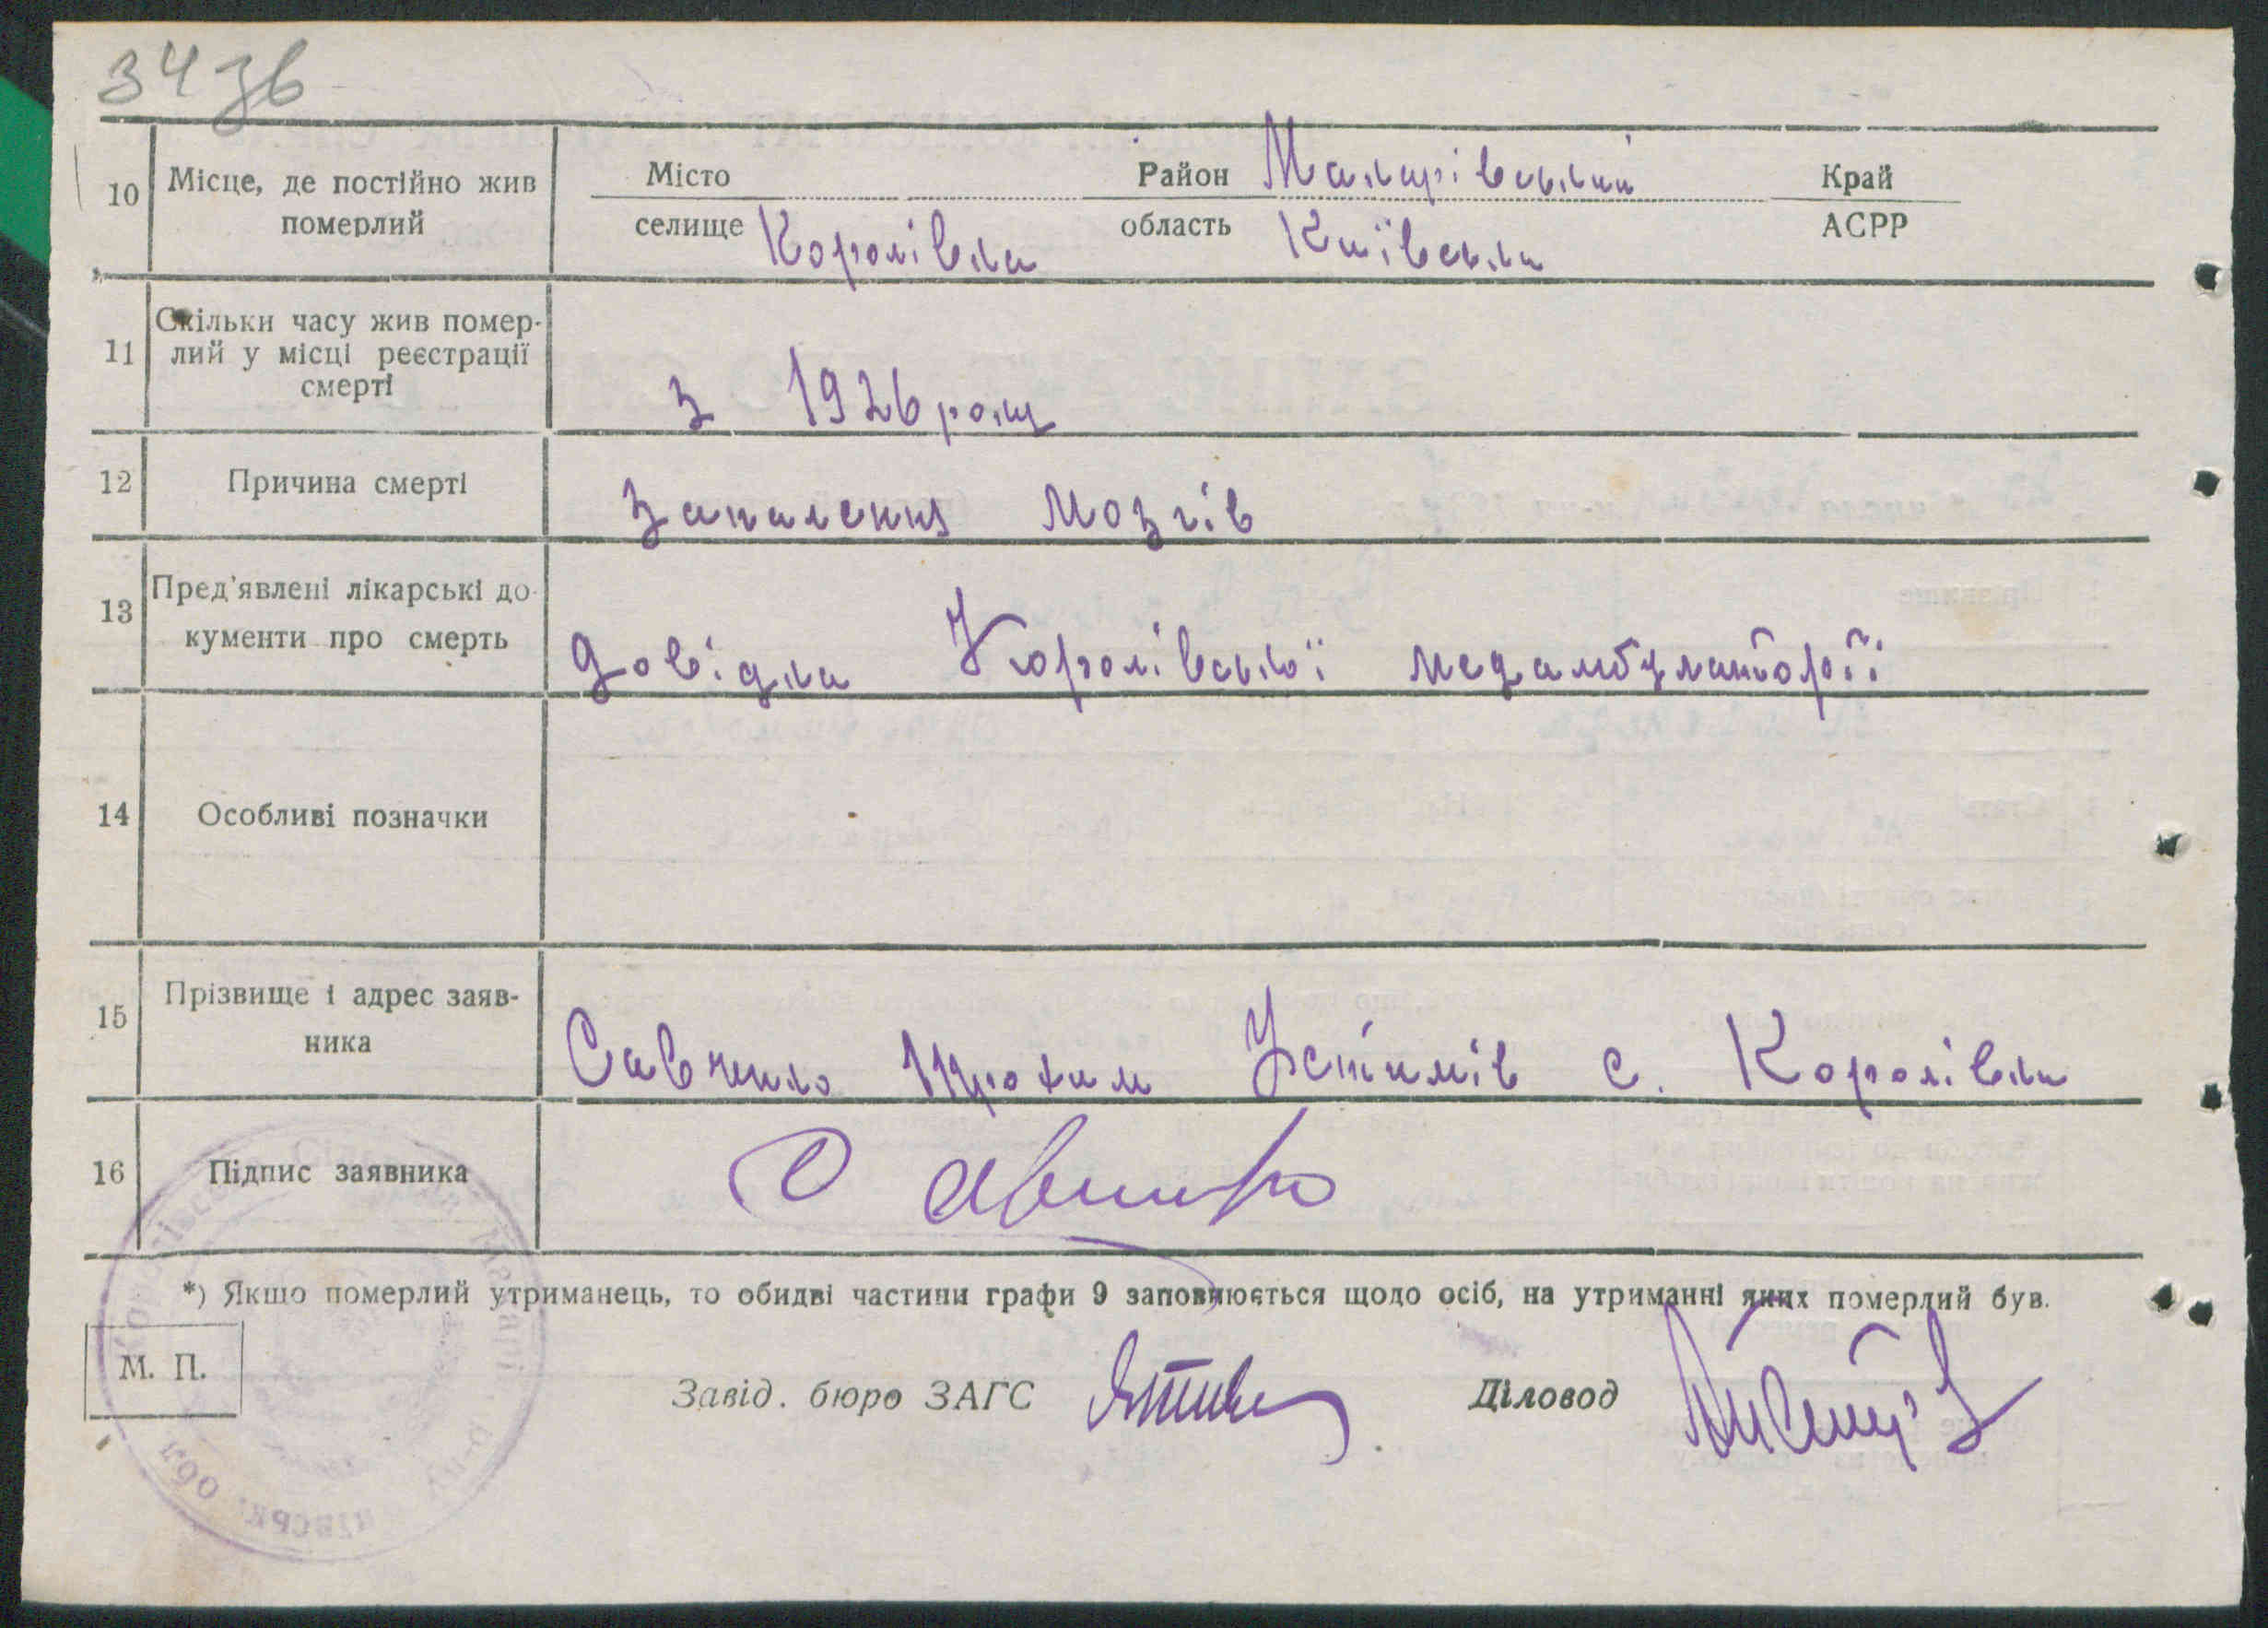 34 зв
10 Місце, де постійно жив померлий
Місто Район Макарівський Край
селище Королівка область Київська АСРР
11 Скільки часу жив помер-
лий у місці реєстрації
смерті
з 1926 року
12 Причина смерті запалення мозгів
13 Пред'явлені лікарські до-
кументи про смерть
довідка Королівської медамбулаторії
14 Особливі позначки
15 Прізвище і адрес заяв-
ника
Савченко Трохим Устимів с. Королівка
16 Підпис заявника Савченко
*) Якщо померлий утриманець, то обидві частини графи 9 заповнюється щодо осіб, на утриманні яких померлий був.
М. П.
Завід. бюро ЗАГС Діловод